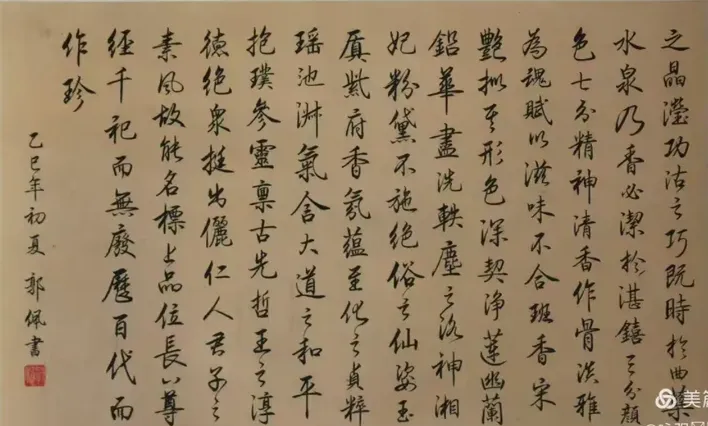 之晶瀅功沽之巧既時於曲糵
水泉乃香必潔於湛饎三分顏
色七分精神清香作骨淡雅
為魂賦以滋味不合班香宋
艷擬其形色深契淨蓮幽蘭
鉛華盡洗軼塵之洛神湘
妃粉黛不施絕俗之仙姿玉
質紫府香氛蘊至化之貞粹
瑤池淋氣含大道之和平
抱璞參靈稟古先哲王之淳
德絕眾挺出儷仁人君子之
素風故能名標上品位長八尊
經千祀而無廢歷百代而
作珍
乙巳年初夏 郭佩書
美篇